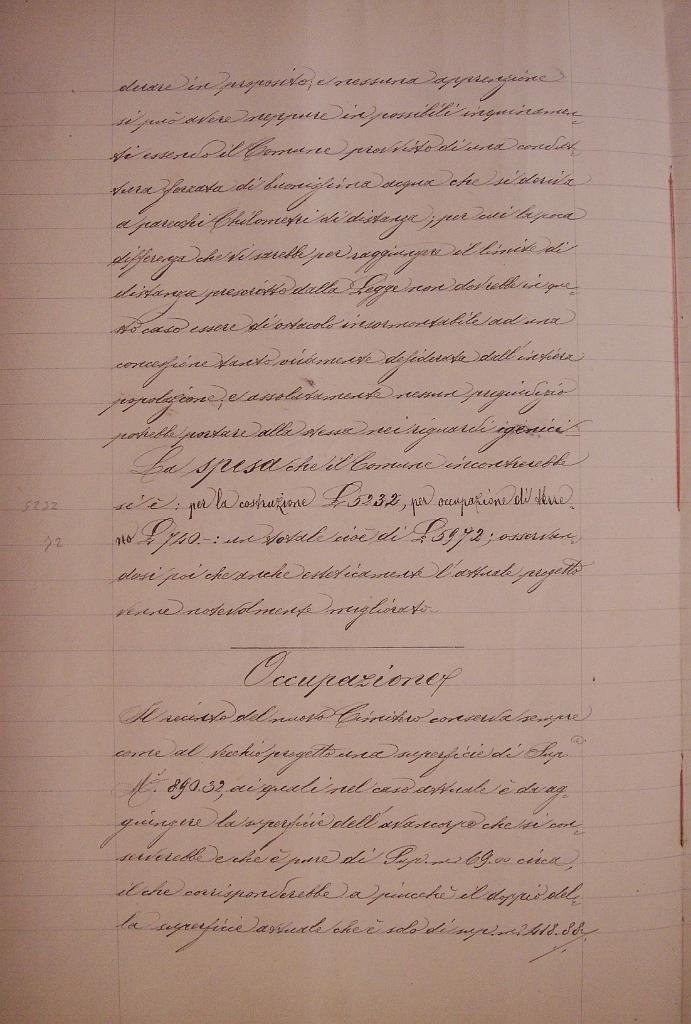 derare in proposito, e nessuna apprenzione
si può avere neppure in possibili inquinamen-
ti essendo il Comune provvisto di una condot-
tura forzata di buonissima acqua che si deriva
a parecchi Chilometri di distanza; per cui la poca
differenza che vi sarebbe per raggiungere il limite di
distanza prescritto dalla Legge non dovrebbe in que-
sto caso essere di ostacolo insormontabile ad una
concessione tanto vivamente desiderata dall'intiera
popolazione, e assolutamente nessun pregiudizio
potrebbe portare alla stessa nei riguardi igenici.-
La spesa che il Comune incontrerebbe
si è: per la costruzione £ 5232, per occupazione di terre-
no £ 740.-: un totale cioè di £ 5972; osservan-
dosi poi che anche esteticamente l'attuale progetto
venne notevolmente migliorato.
5232
72
Occupazione
Il recinto del nuovo Cimitero conserva sempre
come al vecchio progetto una superficie di Sup.
M². 890.32, ai quali nel caso attuale è da ag-
giungere la superficie dell'avancorpo che si con-
serverebbe e che è pure di Sup. m² 69.00 circa,
il che corrisponderebbe a piucchè il doppio del-
la superficie attuale che è solo di sup. m² 418.88.